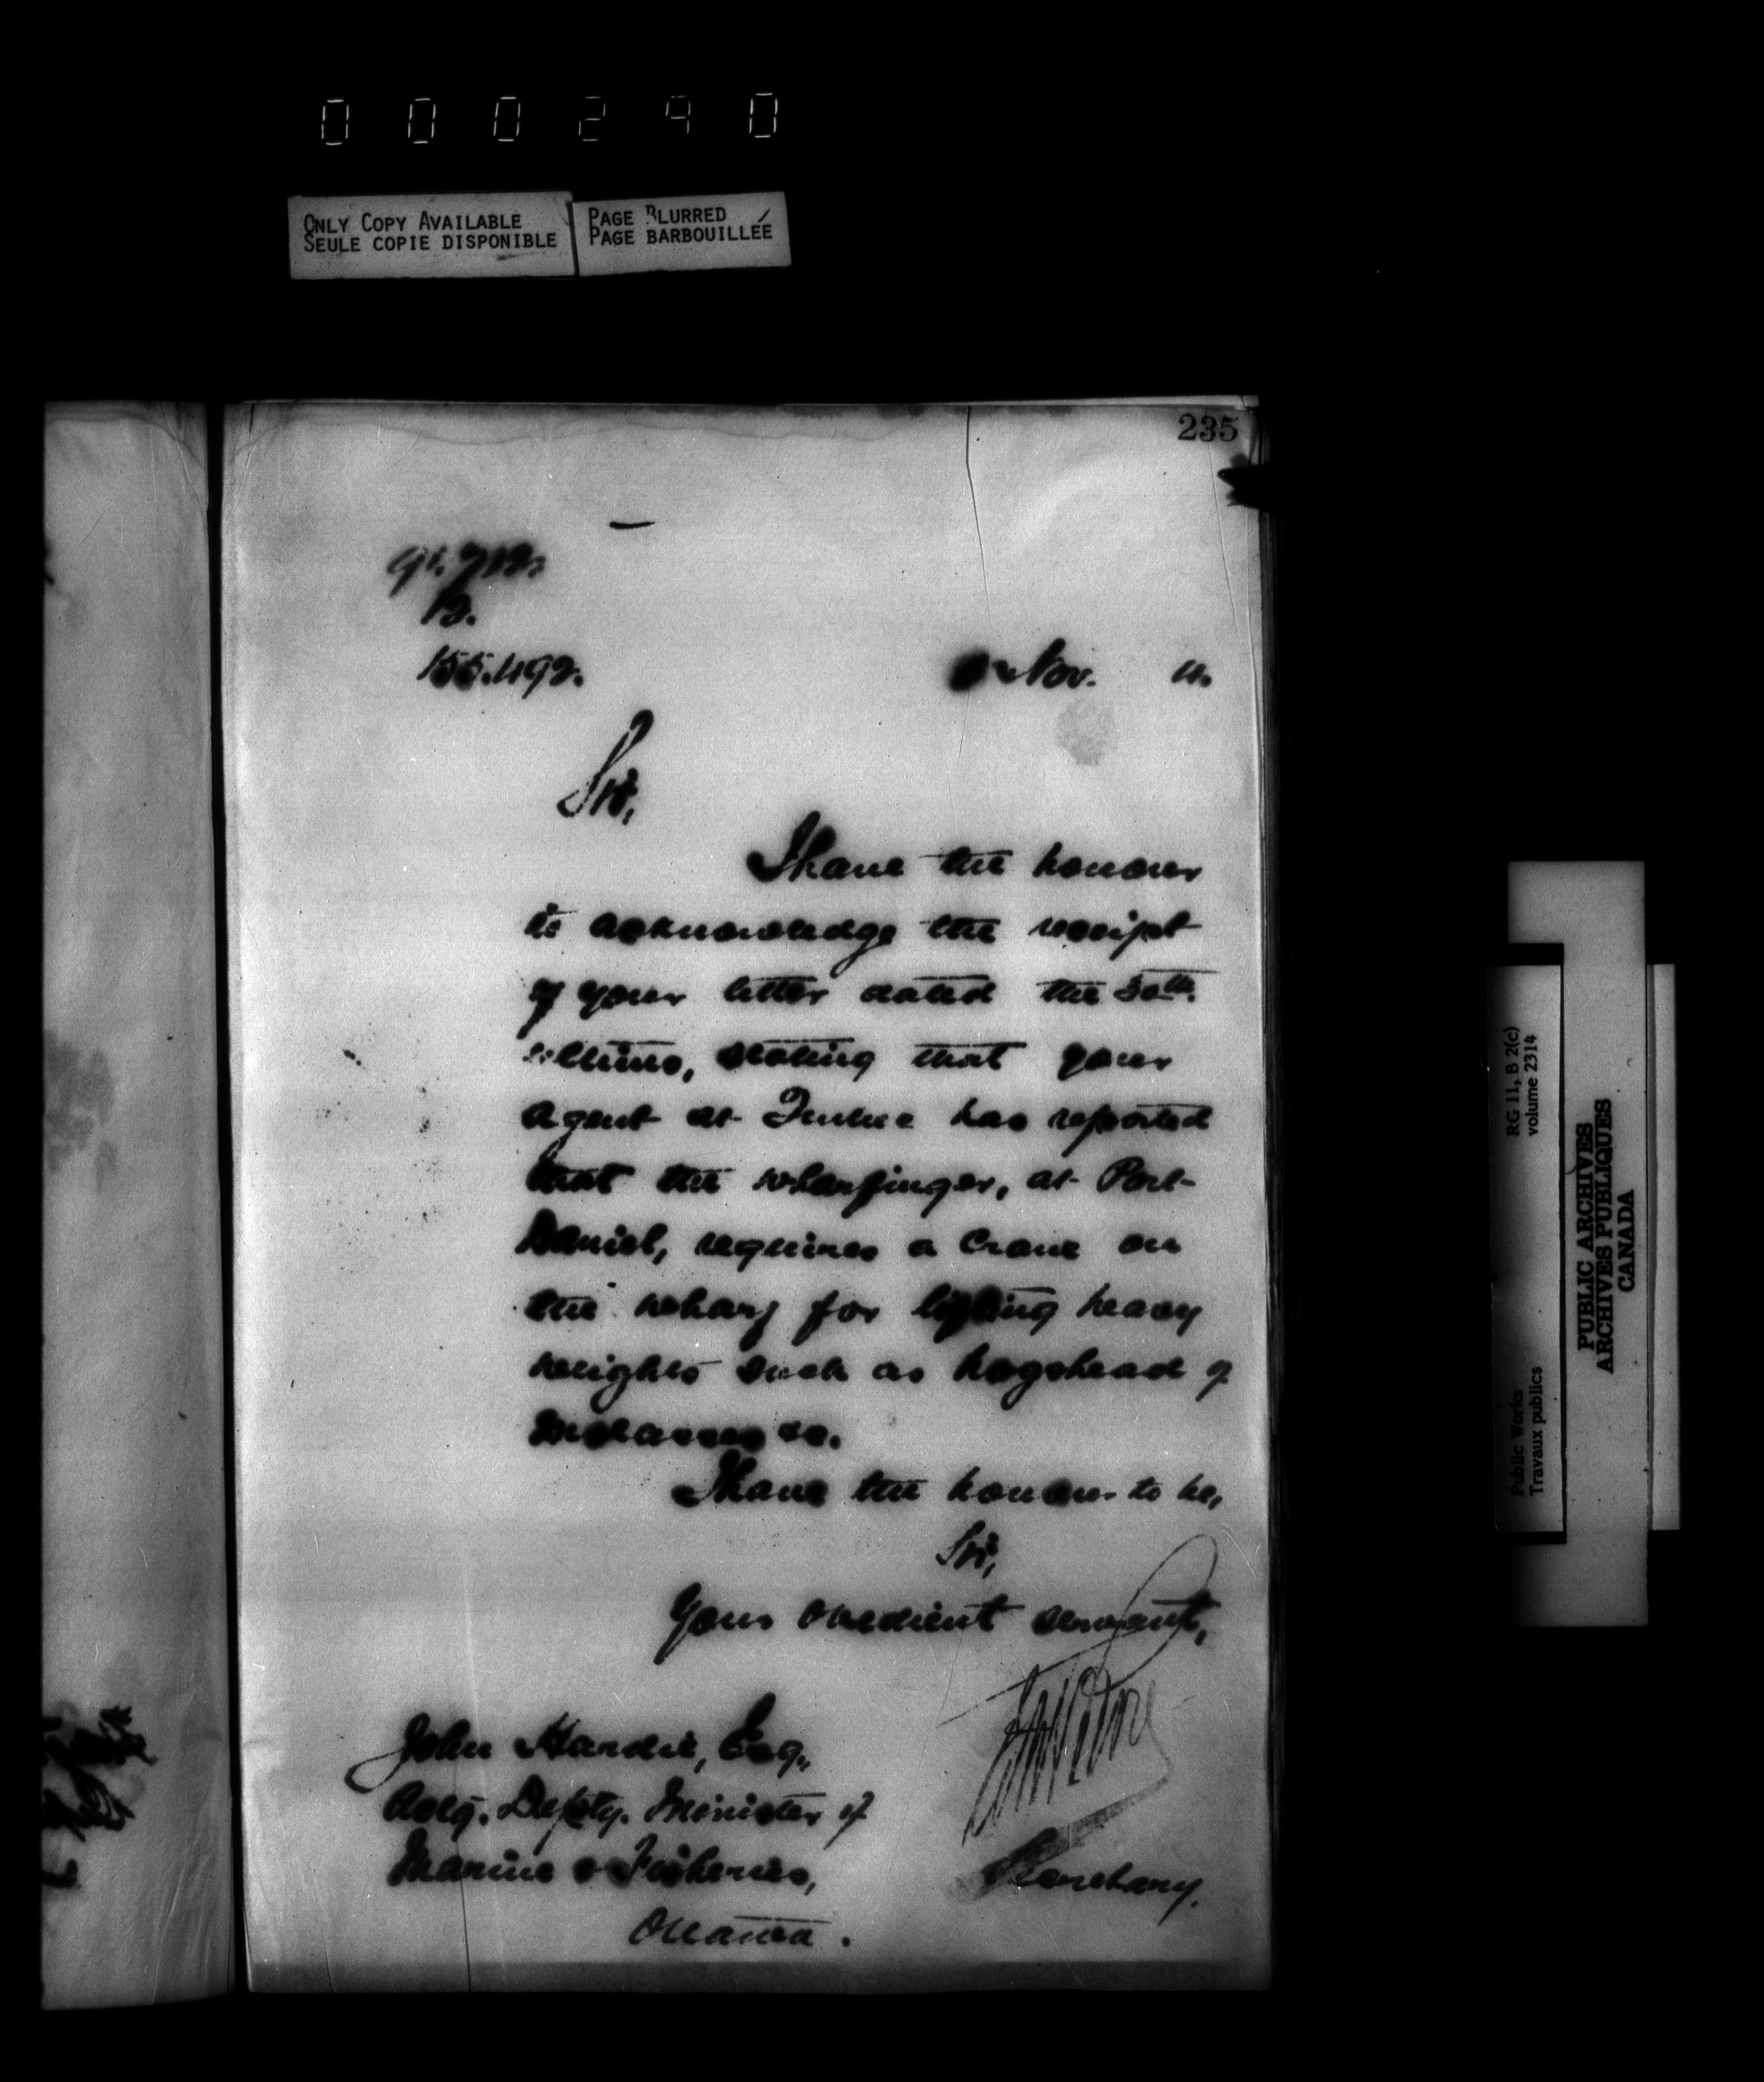 000290
ONLY COPY AVAILABLE
SEULE COPIE DISPONIBLE
PAGE BLURRED
PAGE BARBOUILLÉE
235
155.492.
Nov. 4.
Sir,
I have the honour
to acknowledge the receipt
of your letter dated the 30th.
ultimo, stating that your
agent at has reported
that the wharfinger, at Port-
Daniel, requires a crane on
the wharf for lifting heavy
weights such as hogshead of
molasses &c.
I have the honour to be,
Sir,
Your obedient servant,
John Hardie, Esq.,
Actg. Depty. Minister of
Marine & Fisheries,
Ottawa.
Secretary.
RG 11, B 2(c)
volume 2314
Public Works
Travaux publics
PUBLIC ARCHIVES
ARCHIVES PUBLIQUES
CANADA